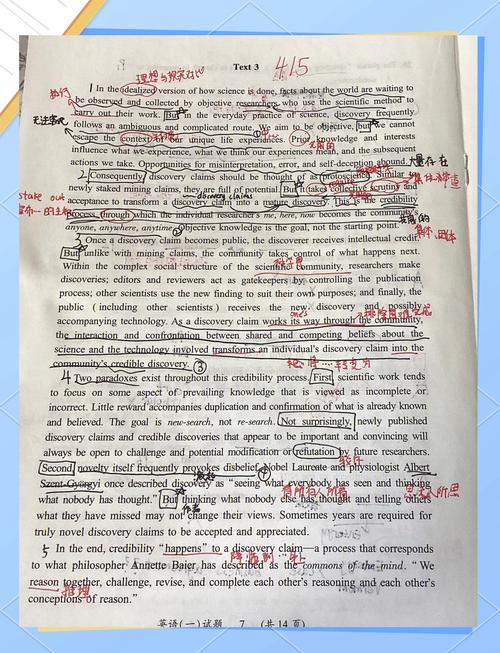 Text 3
4/5
理想与现实对比
1 In the idealized version of how science is done, facts about the world are waiting to
be observed and collected by objective researchers who use the scientific method to
carry out their work. But in the everyday practice of science, discovery frequently
follows an ambiguous and complicated route. We aim to be objective, but we cannot
escape the context of our unique life experiences. Prior knowledge and interests
influence what we experience, what we think our experiences mean, and the subsequent
actions we take. Opportunities for misinterpretation, error, and self-deception abound.
大量存在
2 Consequently, discovery claims should be thought of as protoscience. Similar to
newly staked mining claims, they are full of potential. But it takes collective scrutiny and
acceptance to transform a discovery claim into a mature discovery. This is the credibility
process, through which the individual researcher's me, here, now becomes the community's
anyone, anywhere, anytime. Objective knowledge is the goal, not the starting point.
stake out
discovery claims
3 Once a discovery claim becomes public, the discoverer receives intellectual credit.
But, unlike with mining claims, the community takes control of what happens next.
Within the complex social structure of the scientific community, researchers make
discoveries; editors and reviewers act as gatekeepers by controlling the publication
process; other scientists use the new finding to suit their own purposes; and finally, the
public (including other scientists) receives the new discovery and possibly
accompanying technology. As a discovery claim works its way through the community,
the interaction and confrontation between shared and competing beliefs about the
science and the technology involved transforms an individual's discovery claim into the
community's credible discovery. ③
one's
4 Two paradoxes exist throughout this credibility process. First, scientific work tends
to focus on some aspect of prevailing knowledge that is viewed as incomplete or
incorrect. Little reward accompanies duplication and confirmation of what is already known
and believed. The goal is new-search, not re-search. Not surprisingly, newly published
discovery claims and credible discoveries that appear to be important and convincing will
always be open to challenge and potential modification or refutation by future researchers.
Second, novelty itself frequently provokes disbelief. Nobel Laureate and physiologist Albert
Szent-Györgyi once described discovery as "seeing what everybody has seen and thinking
what nobody has thought." But thinking what nobody else has thought and telling others
what they have missed may not change their views. Sometimes years are required for
truly novel discovery claims to be accepted and appreciated.
5 In the end, credibility "happens" to a discovery claim—a process that corresponds
to what philosopher Annette Baier has described as the commons of the mind. "We
reason together, challenge, revise, and complete each other's reasoning and each other's
conceptions of reason."
推理
英语(一)试题 7 (共14页)